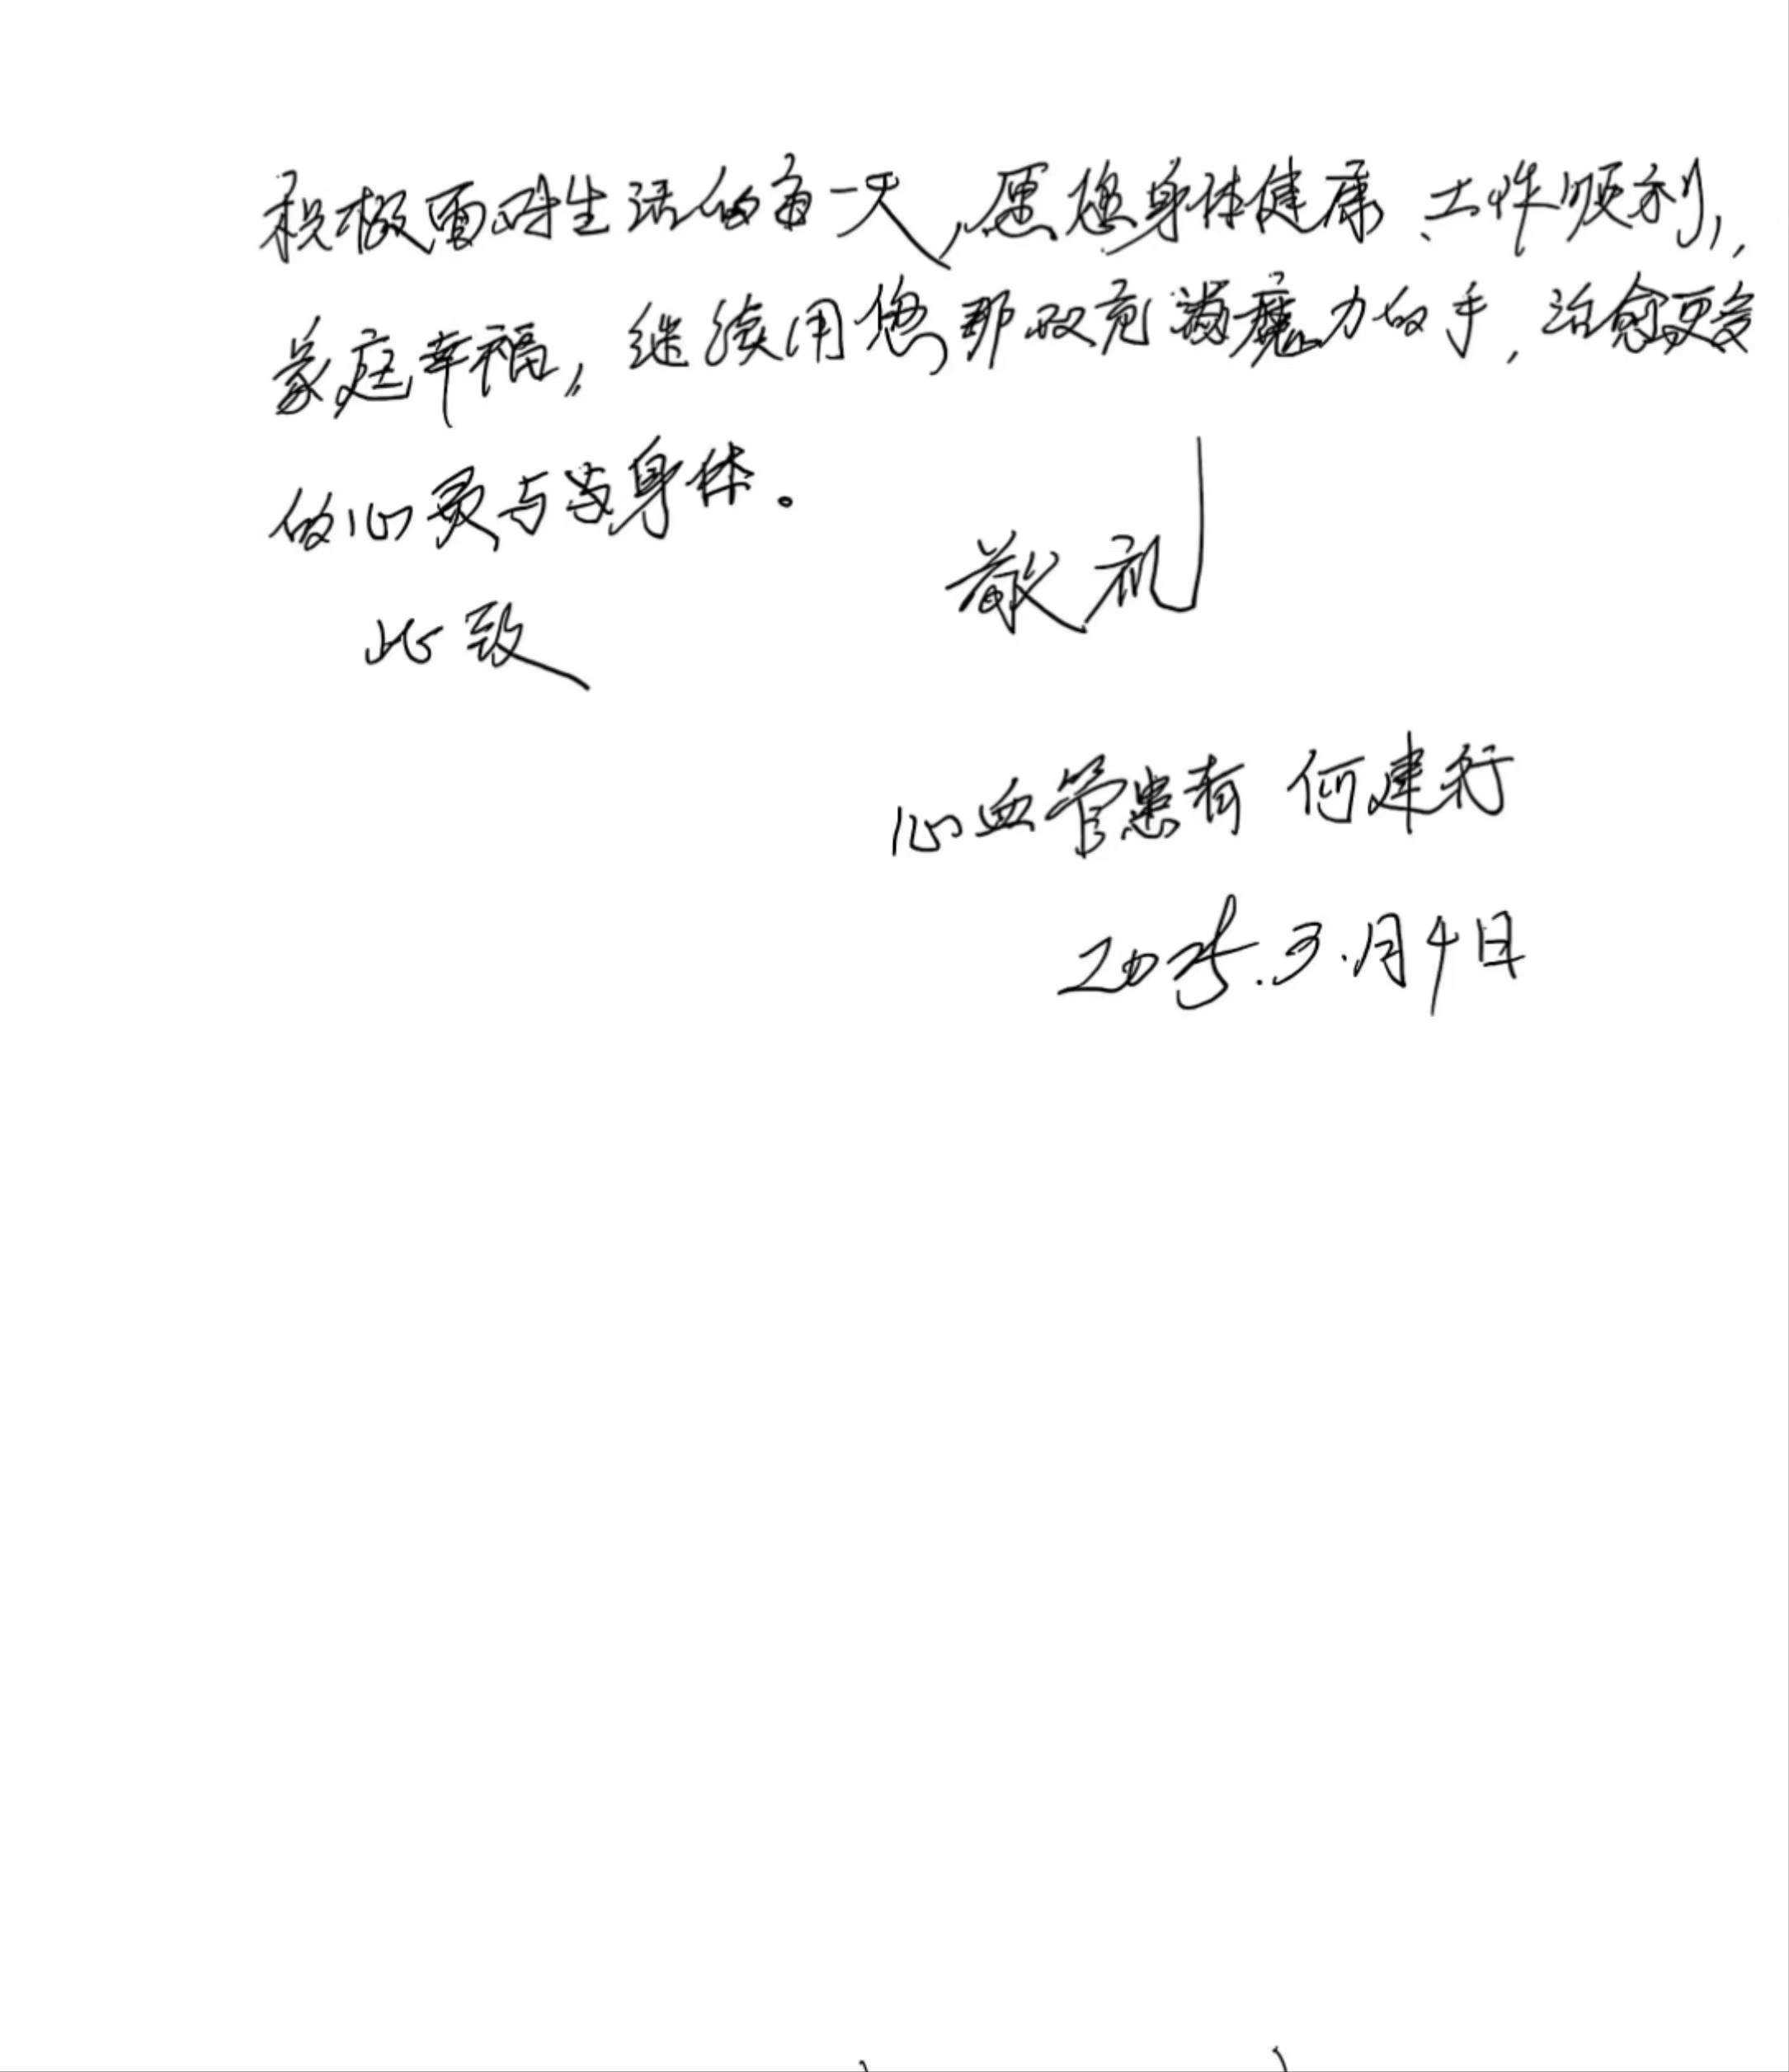 积极面对生活的每一天,愿您身体健康、工作顺利,
家庭幸福,继续用您那双充满魔力的手,治愈更多
的心灵与身体。
此致
敬礼
心血管患者 何建行
2025.3.月4日